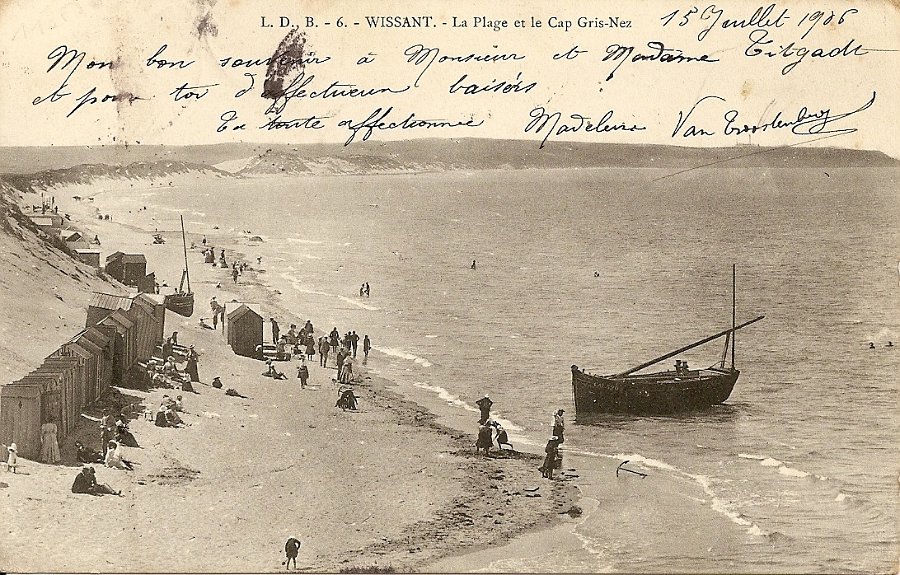 L. D., B. - 6. - WISSANT. - La Plage et le Cap Gris-Nez
15 Juillet 1906
Mon bon souvenir à Monsieur et Madame Titgadt
et pour toi d'affectueux baisérs
Ta toute affectionnée Madeleine Van Troostenberg